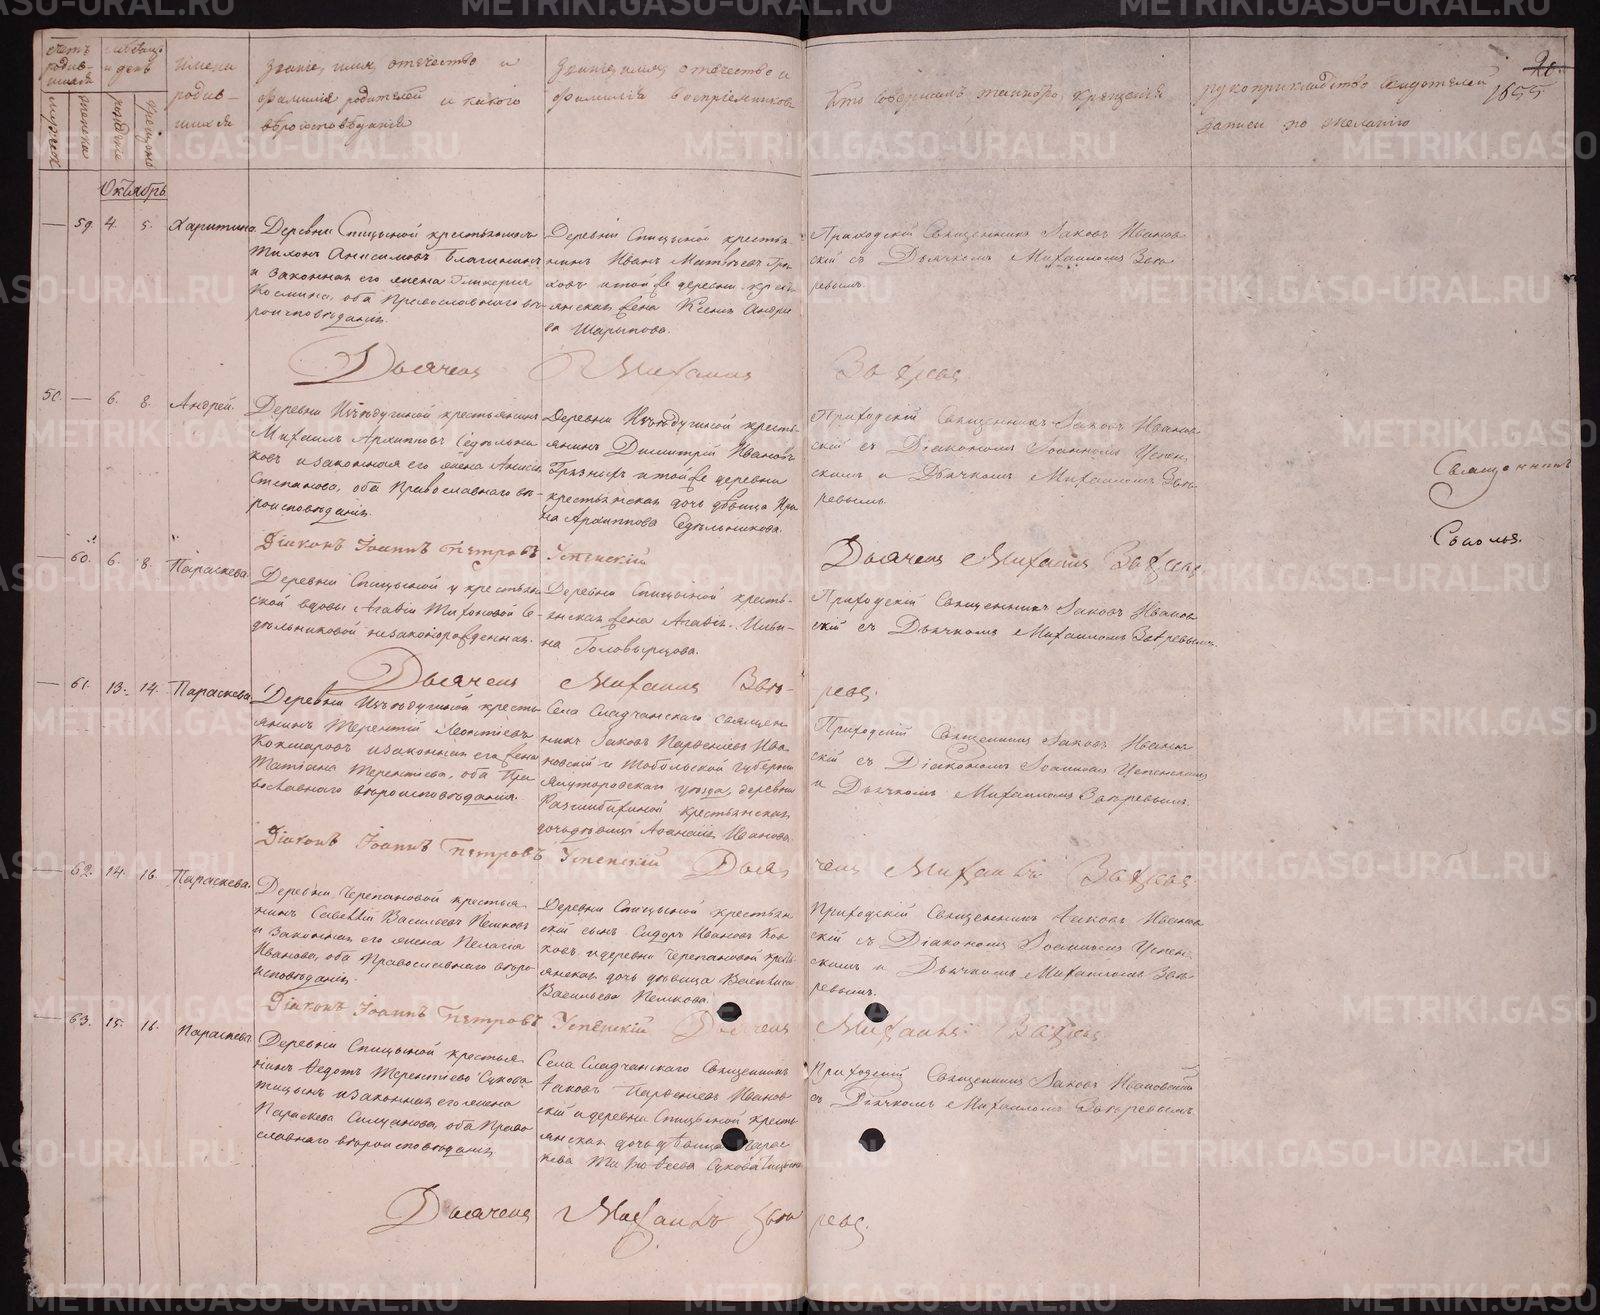 METRIKI.GASO-URAL.RU
20.
1655
Счетъ родив-шихся
Мѣсяцъ и день
Имена родив-шихся
Званіе, имя, отчество и фамилія родителей и какого вѣроисповѣданія
Званіе, имя, отчество и фамилія воспріемниковъ
Кто совершалъ таинство крещенія
рукоприкладство свидѣтелей записи по желанію
мужеска
женска
рожденія
крещенія
Октябрь
— 59. 4. 5. Харитина.
Деревни Спицыной крестьянинъ
Тихонъ Анисимовъ
и законная его жена Гликерія
Космина, оба Православнаго вѣ-
роисповѣданія.
Деревни Спицыной крестья-
нинъ Иванъ Матвѣевъ
и той же деревни крест-
янская жена Ксенія Андре
ва Шарыпова.
Приходскій Священникъ Іаковъ Иванов-
скій съ Дьячкомъ Михаиломъ Звѣ-
ревымъ.
Дьячекъ Михаилъ Звѣревъ.
50. — 6. 8. Андрей.
Деревни крестьянинъ
Михаилъ Архиповъ Сѣдѣльни
ковъ и законная его жена Анисія
Степанова, оба Православнаго вѣ-
роисповѣданія.
Деревни кресть-
янинъ Димитрій Ивановъ
Грязныхъ и той же деревни
крестьянская дочь дѣвица Ири
на Архиппова Сѣдѣльникова.
Приходскій Священникъ Іаковъ Иванов-
скій съ Діакономъ Іоанномъ Успен-
скимъ и Дьячкомъ Михаиломъ Звѣ-
ревымъ.
Священникъ
Діаконъ Іоаннъ Петровъ Успенскій Дьячекъ Михаилъ Звѣревъ
— 60. 6. 8. Параскева.
Деревни Спицыной у крестьян
ской вдовы Агавіи Тихоновой Сѣ-
дѣльниковой незаконорожденная.
Деревни Спицыной кресть-
янская жена Агавія Ильи-
на Головырцова.
Приходскій Священникъ Іаковъ Иванов-
скій съ Дьячкомъ Михаиломъ Звѣревымъ.
Дьячекъ Михаилъ Звѣ-ревъ.
— 61. 13. 14. Параскева.
Деревни кресть
янинъ Терентій Леонтіевъ
Кокшаровъ и законная его жена
Татіана Терентіева, оба Пра
вославнаго вѣроисповѣданія.
Села Сладчанскаго священ
никъ Іаковъ Парѳеніевъ Ива
новскій и Тобольской губерніи
Ялуторовскаго уѣзда, деревни
крестьянская
дочь дѣвица Аѳанасія Иванова.
Приходскій Священникъ Іаковъ Иванов
скій съ Діакономъ Іоанномъ Успенскимъ
и Дьячкомъ Михаиломъ Звѣревымъ.
Діаконъ Іоаннъ Петровъ Успенскій Дьячекъ Михаилъ Звѣревъ
— 62. 14. 16. Параскева.
Деревни Черепановой крестья
нинъ Саветтій Васильевъ Пешковъ
и законная его жена Пелагія
Иванова, оба Православнаго вѣро
исповѣданія.
Деревни Спицыной крестьян
скій сынъ Сидоръ Ивановъ
и деревни Черепановой крест
янская дочь дѣвица Васильева Пешкова.
Приходскій Священникъ Іаковъ Иванов
скій съ Діакономъ Іоанномъ Успен
скимъ и Дьячкомъ Михаиломъ Звѣ
ревымъ.
Діаконъ Іоаннъ Петровъ Успенскій Дьячекъ Михаилъ Звѣревъ
— 63. 15. 16. Параскева.
Деревни Спицыной крестья
нинъ Ѳедотъ Терентіевъ Сукова
тицынъ и законная его жена
Параскева оба Право
славнаго вѣроисповѣданія
Села Сладчанскаго Священникъ
Іаковъ Парѳеніевъ Иванов
скій и деревни Спицыной кресть
янская дочь дѣвица Парас
кева Тимоѳеева Суковатицына
Приходскій Священникъ Іаковъ Ивановскій
съ Дьячкомъ Михаиломъ Звѣревымъ.
Дьячекъ Михаилъ Звѣревъ.